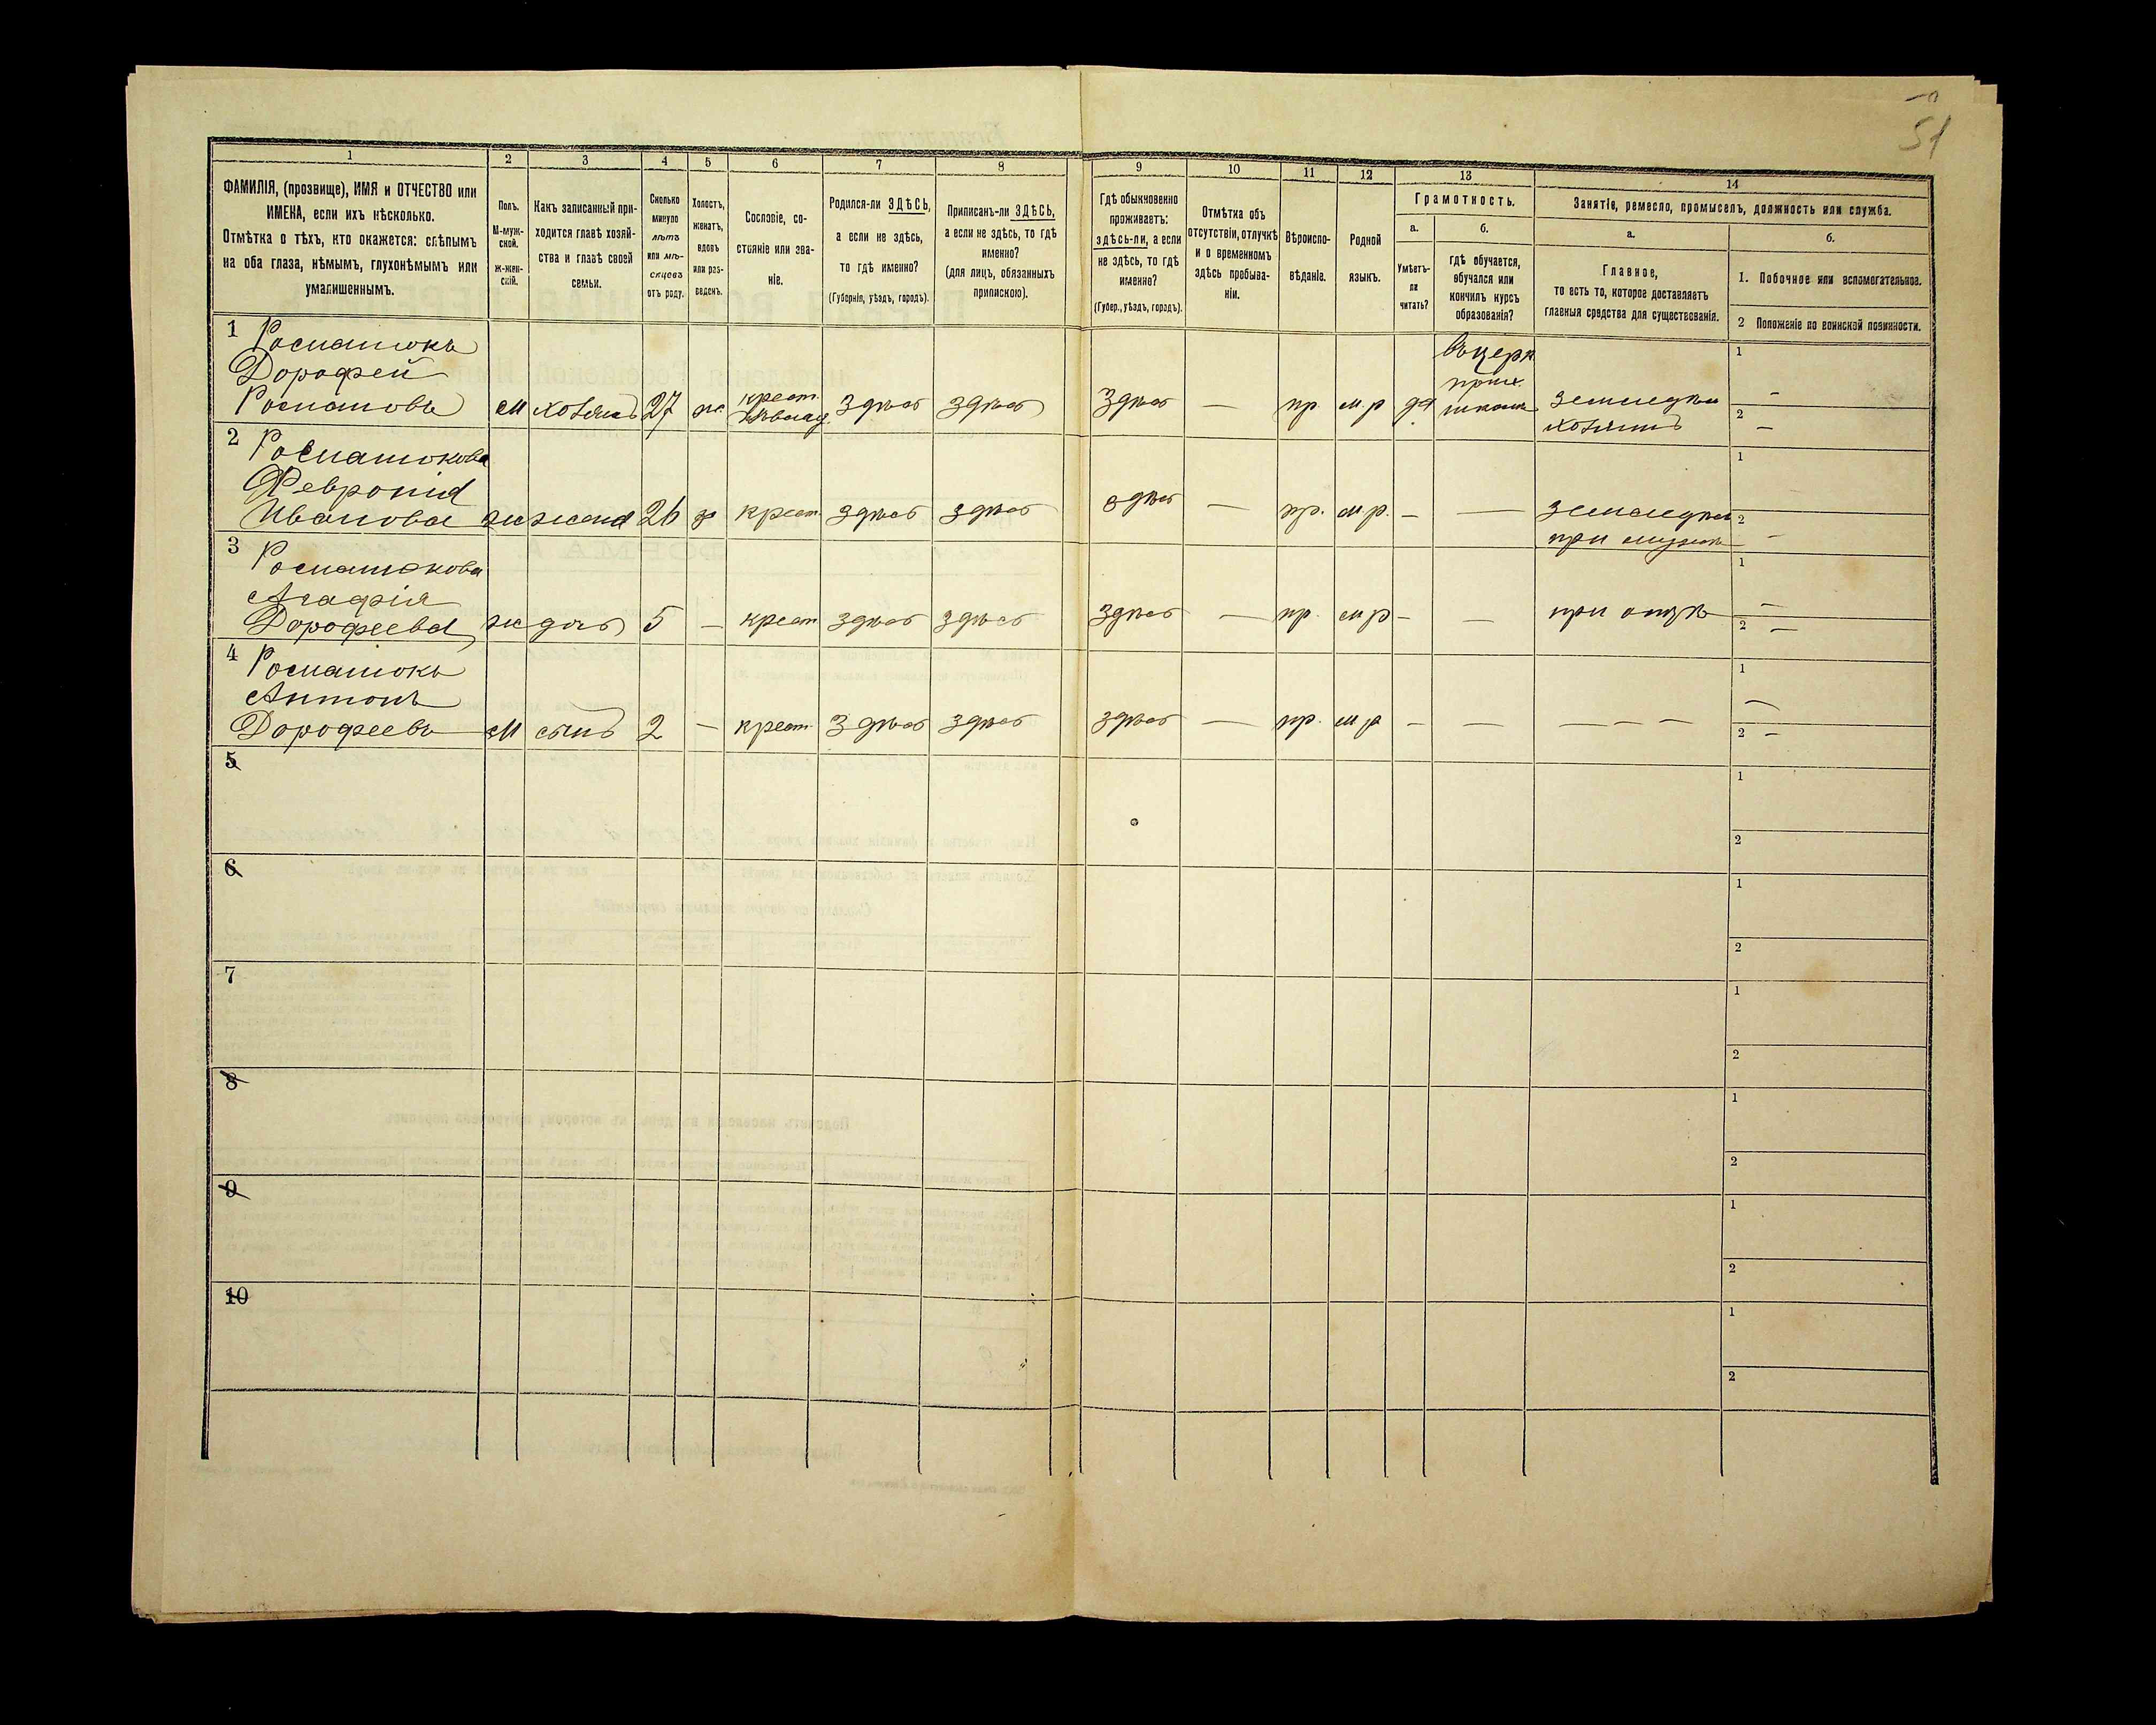 51
1 2 3 4 5 6 7 8 9 10 11 12 13 14
ФАМИЛІЯ, (прозвище), ИМЯ и ОТЧЕСТВО или
ИМЕНА, если ихъ нѣсколько.
Отмѣтка о тѣхъ, кто окажется: слѣпымъ
на оба глаза, нѣмымъ, глухонѣмымъ или
умалишеннымъ.
Полъ.
М-муж-
ской.
Ж-жен-
скій.
Какъ записанный при-
ходится главѣ хозяй-
ства и главѣ своей
семьи.
Сколько
минуло
лѣтъ
или мѣ-
сяцевъ
отъ роду.
Холостъ,
женатъ,
вдовъ
или раз-
веденъ.
Сословіе, со-
стояніе или зва-
ніе.
Родился-ли ЗДѢСЬ,
а если не здѣсь,
то гдѣ именно?
(Губернія, уѣздъ, городъ).
Приписанъ-ли ЗДѢСЬ,
а если не здѣсь, то гдѣ
именно?
(для лицъ, обязанныхъ
припискою).
Гдѣ обыкновенно
проживаетъ:
здѣсь-ли, а если
не здѣсь, то гдѣ
именно?
(Губер., уѣздъ, городъ).
Отмѣтка объ
отсутствіи, отлучкѣ
и о временномъ
здѣсь пребыва-
ніи.
Вѣроиспо-
вѣданіе.
Родной
языкъ.
Грамотность.
а.
Умѣетъ-
ли
читать?
б.
гдѣ обучается,
обучался или
кончилъ курсъ
образованія?
Занятіе, ремесло, промыселъ, должность или служба.
а.
Главное,
то есть то, которое доставляетъ
главныя средства для существованія.
б.
1. Побочное или вспомогательное.
2 Положеніе по воинской повинности.
1
Дорофей
м 27 ж. крест. здѣсь здѣсь здѣсь — пр. мр да
въ церк.
прих.
школѣ
1 —
2 —
2
Февронія
Иванова ж жена 26 з крест. здѣсь здѣсь здѣсь — пр. мр. — —
при мужѣ
1
2 —
3
Агафія
Дорофеева ж дочь 5 — крест здѣсь здѣсь здѣсь — пр. мр — — при отцѣ
1 —
2 —
4
Антонъ
Дорофеевъ м сынъ 2 — крест. здѣсь здѣсь здѣсь — пр. мр — — — — —
1 —
2 —
5
1
2
6
1
2
7
1
2
8
1
2
9
1
2
10
1
2